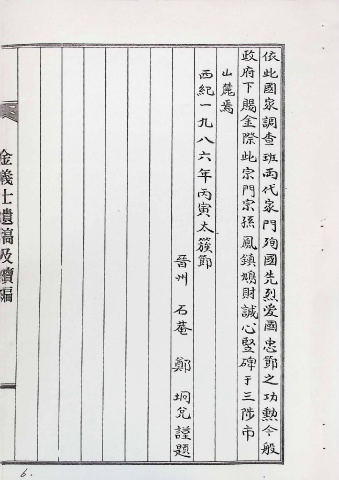 依此國家調査班両代家門殉國先烈爱國忠節之功勲今般
政府下賜金際此宗門宗孫鳳鎮鳩財誠心竪碑于三陟市
山麓焉
西紀一九八六年丙寅太簇節
晋州 石菴 鄭 坰允謹題
金義士遺稿及續編
6.